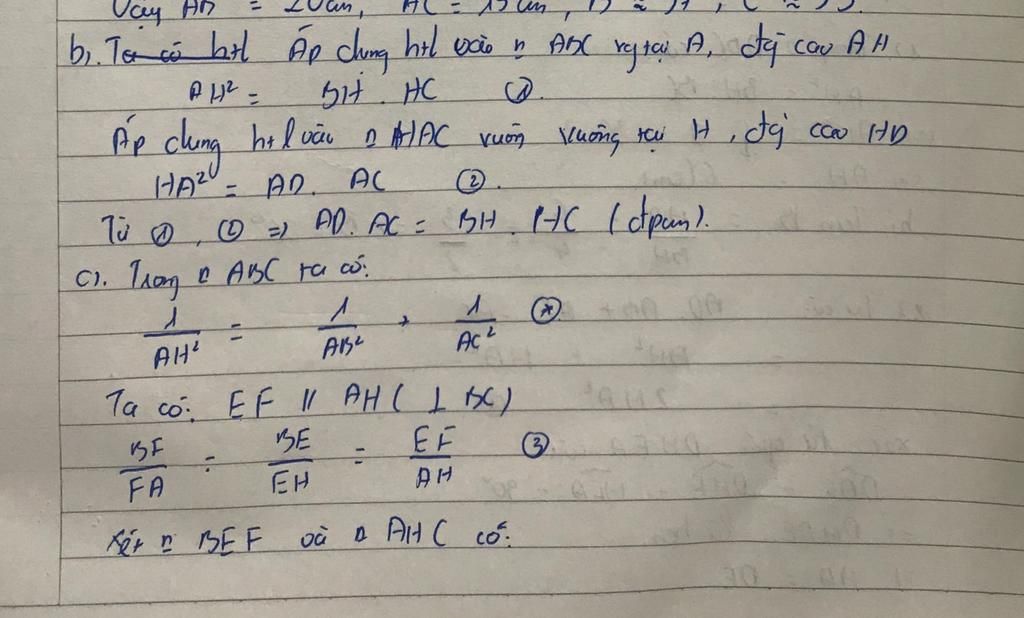 Vậy AB = 20cm, AC = 15cm,
b). Ta có htl Áp dụng htl vào △ ABC vg tại A, đg cao AH
AH² = BH . HC ①.
Áp dụng htl vào △ HAC vuôn vuông tại H, đg cao HD
HA² = AD. AC ②.
Từ ①, ② => AD. AC = BH . HC (đpcm).
c). Trong △ ABC ta có:
1/AH² = 1/AB² + 1/AC² (*)
Ta có: EF // AH ( ⊥ BC)
BF/FA = BE/EH = EF/AH ③
Xét △ BEF và △ AHC có: